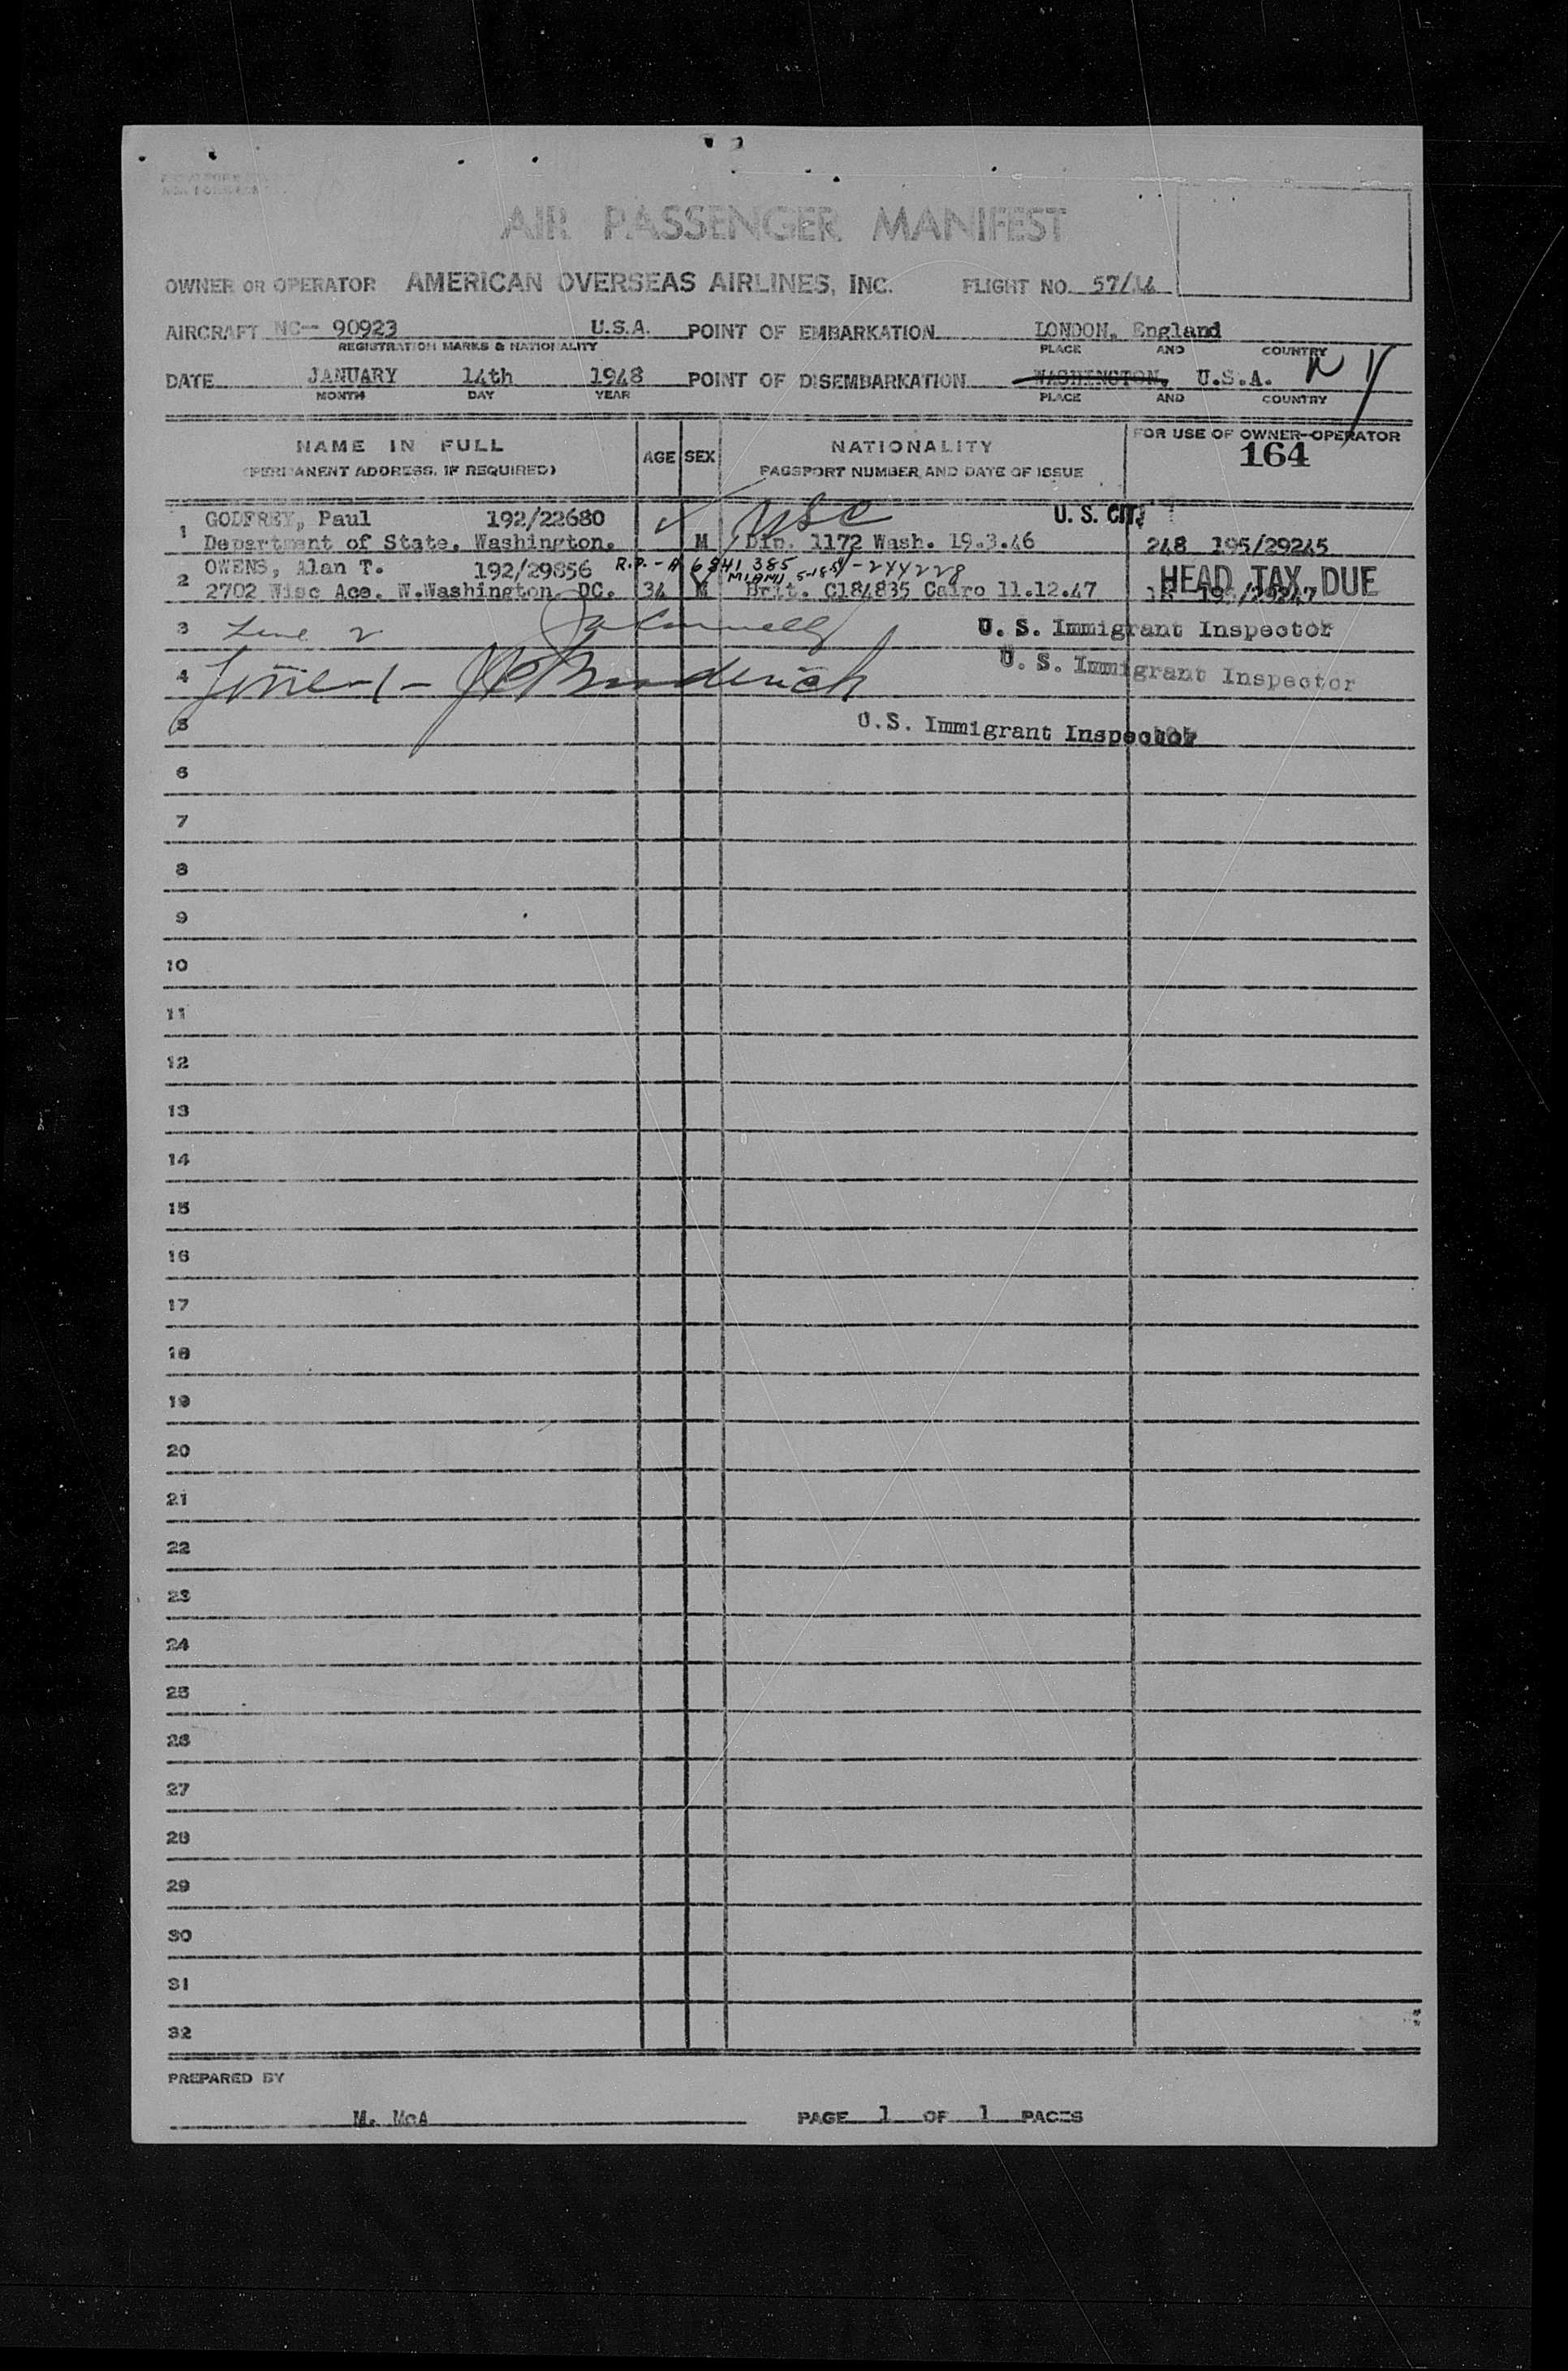 AIR PASSENGER MANIFEST
OWNER OR OPERATOR AMERICAN OVERSEAS AIRLINES, INC. FLIGHT NO. 57/14
AIRCRAFT NC- 90923 U.S.A. POINT OF EMBARKATION LONDON, England
REGISTRATION MARKS & NATIONALITY PLACE AND COUNTRY
DATE JANUARY 14th 1948 POINT OF DISEMBARKATION WASHINGTON, U.S.A. NY
MONTH DAY YEAR PLACE AND COUNTRY
NAME IN FULL AGE SEX NATIONALITY FOR USE OF OWNER-OPERATOR
(PERMANENT ADDRESS, IF REQUIRED) PASSPORT NUMBER, AND DATE OF ISSUE 164
1 GODFREY, Paul 192/22680 USC U.S. CIT.
Department of State. Washington. M Dip. 1172 Wash. 19.3.46 248 195/29245
2 OWENS, Alan T. 192/29856 R.P.-A 6841 385 MIAMI 5-18-54-244228 HEAD TAX DUE
2702 Wisc Ace. N.Washington DC. 34 M Brit. C184835 Cairo 11.12.47 195/29247
3 Line 2 U. S. Immigrant Inspector
4 Line-1- U. S. Immigrant Inspector
5 U.S. Immigrant Inspector
6
7
8
9
10
11
12
13
14
15
16
17
18
19
20
21
22
23
24
25
26
27
28
29
30
31
32
PREPARED BY
M. McA PAGE 1 OF 1 PAGES